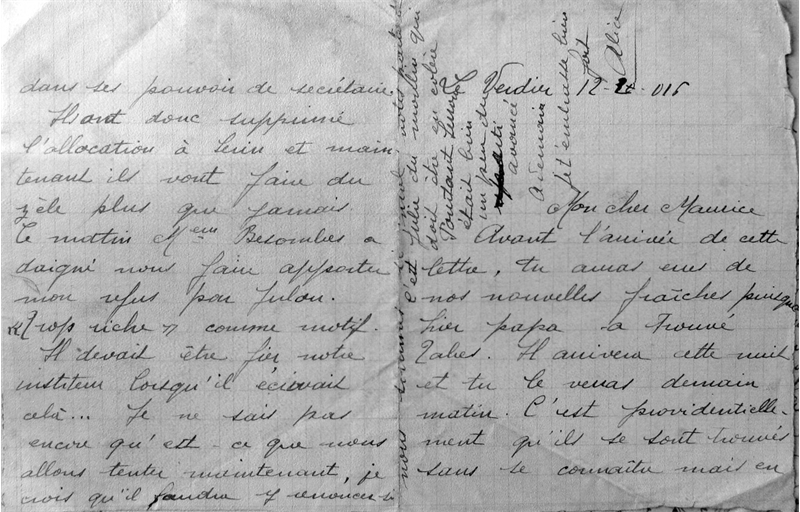 Le Verdier 12-2-016
Mon cher Maurice
Avant l'arrivée de cette
lettre, tu auras eues de
nos nouvelles fraîches puisque
hier papa a trouvé
Il arrivera cette nuit
et tu le verras demain
matin. C'est providentielle-
ment qu'ils se sont trouvés
sans se connaître mais en
dans ses pouvoir de secrétaire.
Ils ont donc supprimé
l'allocation à et main-
tenant ils vont faire du
zèle plus que jamais.
Ce matin Mme Besombes a
daigné nous faire apporter
mon refus pour Julou.
"Trop riche" comme motif.
Il devait être fier notre
institeur lorsqu'il écrivait
celà... Je ne sais pas
encore qu'est-ce que nous
allons tenter maintenant, je
crois qu'il faudra y renoncer
nous
c'est Julie du moulin qui
doit être en colère
Pourtant
était bien
un peu
avancé
A demain
je t'embrasse bien
fort
Alice